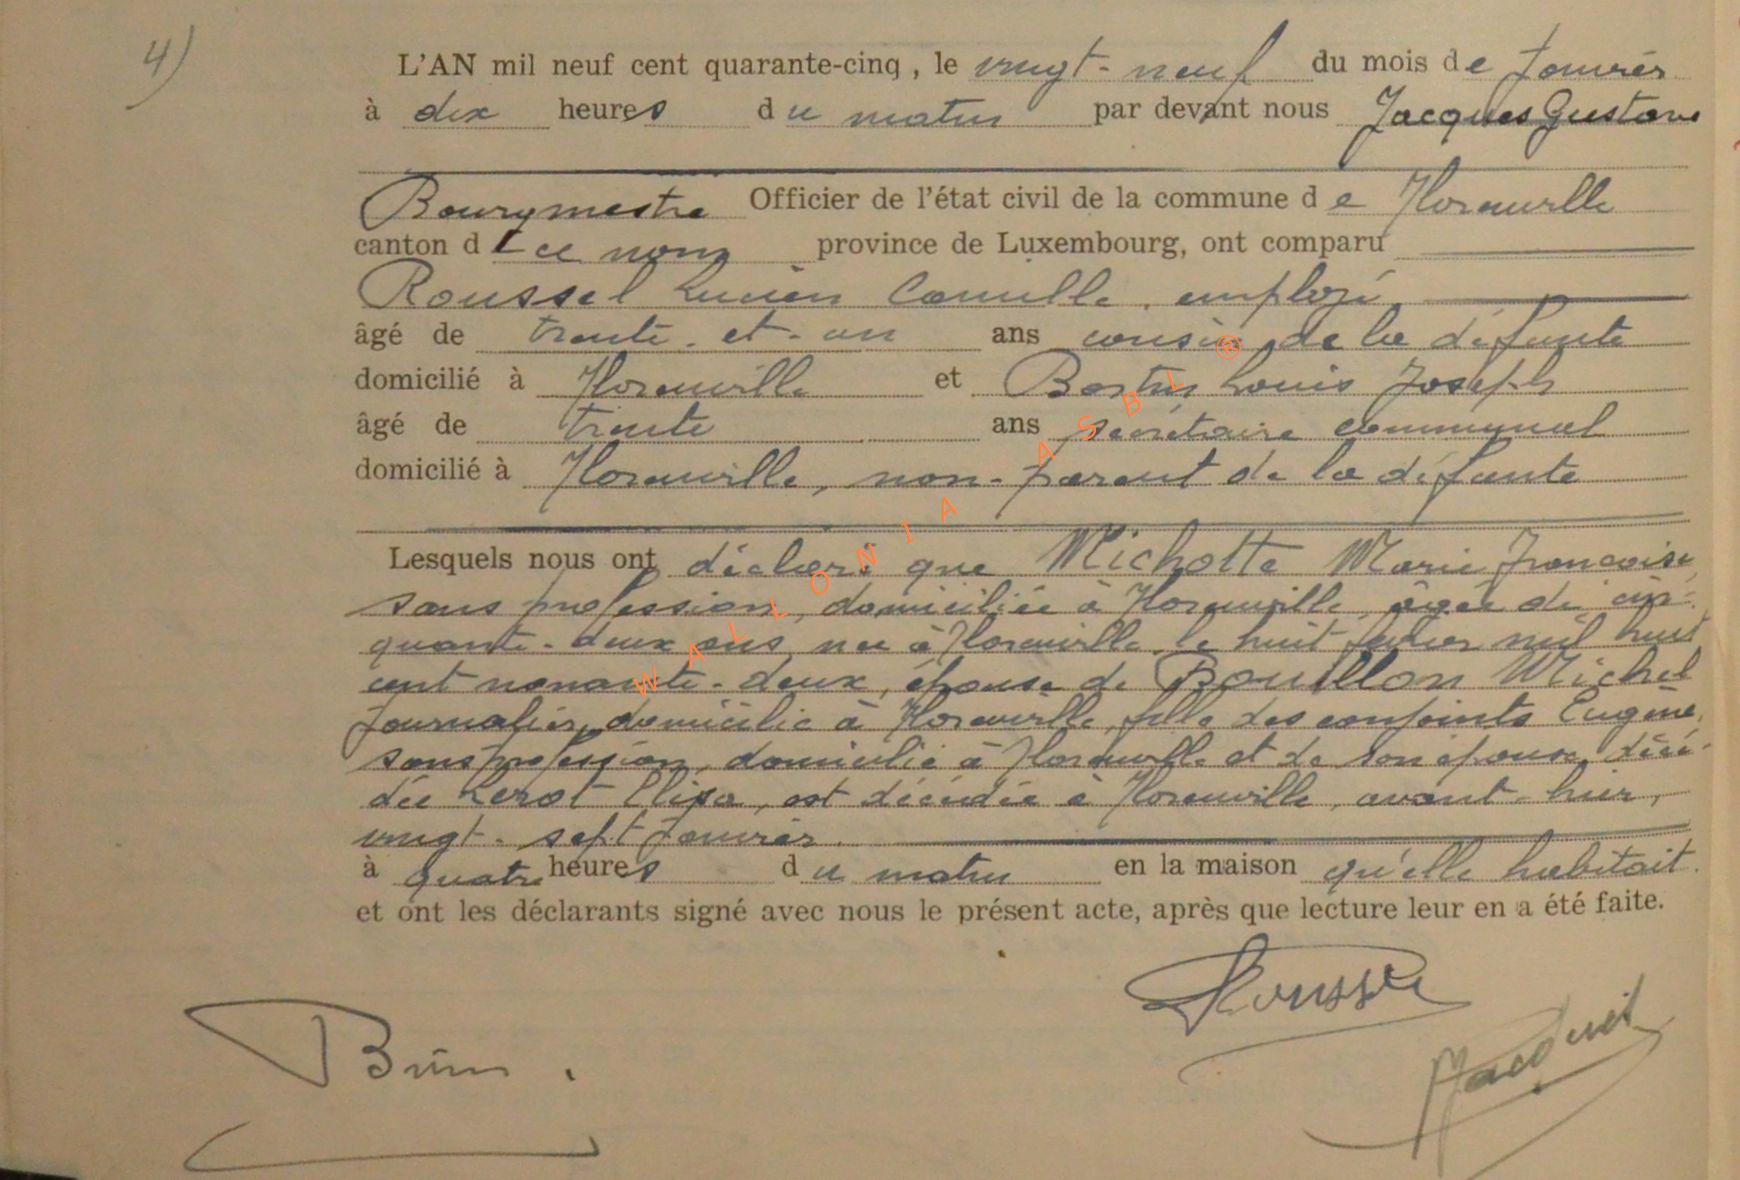 4)
L'AN mil neuf cent quarante-cinq, le vingt-neuf du mois de Janvier
à dix heures du matin par devant nous Jacques Gustave
Bourgmestre Officier de l'état civil de la commune de
canton d ce nom province de Luxembourg, ont comparu
Roussel Lucien Camille, employé,
âgé de trente-et-un ans cousin de la défunte
domicilié à et Louis Joseph
âgé de trente ans secrétaire communal
domicilié à non-parent de la défunte
Lesquels nous ont déclaré que Michotte Marie Françoise,
sans profession, domiciliée à âgée de cin-
quante-deux ans, née à le huit février mil huit
cent nonante-deux, épouse de Bouillon Michel
journalier, domicilié à fille des conjoints Eugène,
sans profession, domicilié à et de son épouse décé-
dée Elisa, est décédée à avant-hier,
vingt-sept Janvier.
à quatre heures du matin en la maison qu'elle habitait.
et ont les déclarants signé avec nous le présent acte, après que lecture leur en a été faite.
WALLONIA ASBL ®